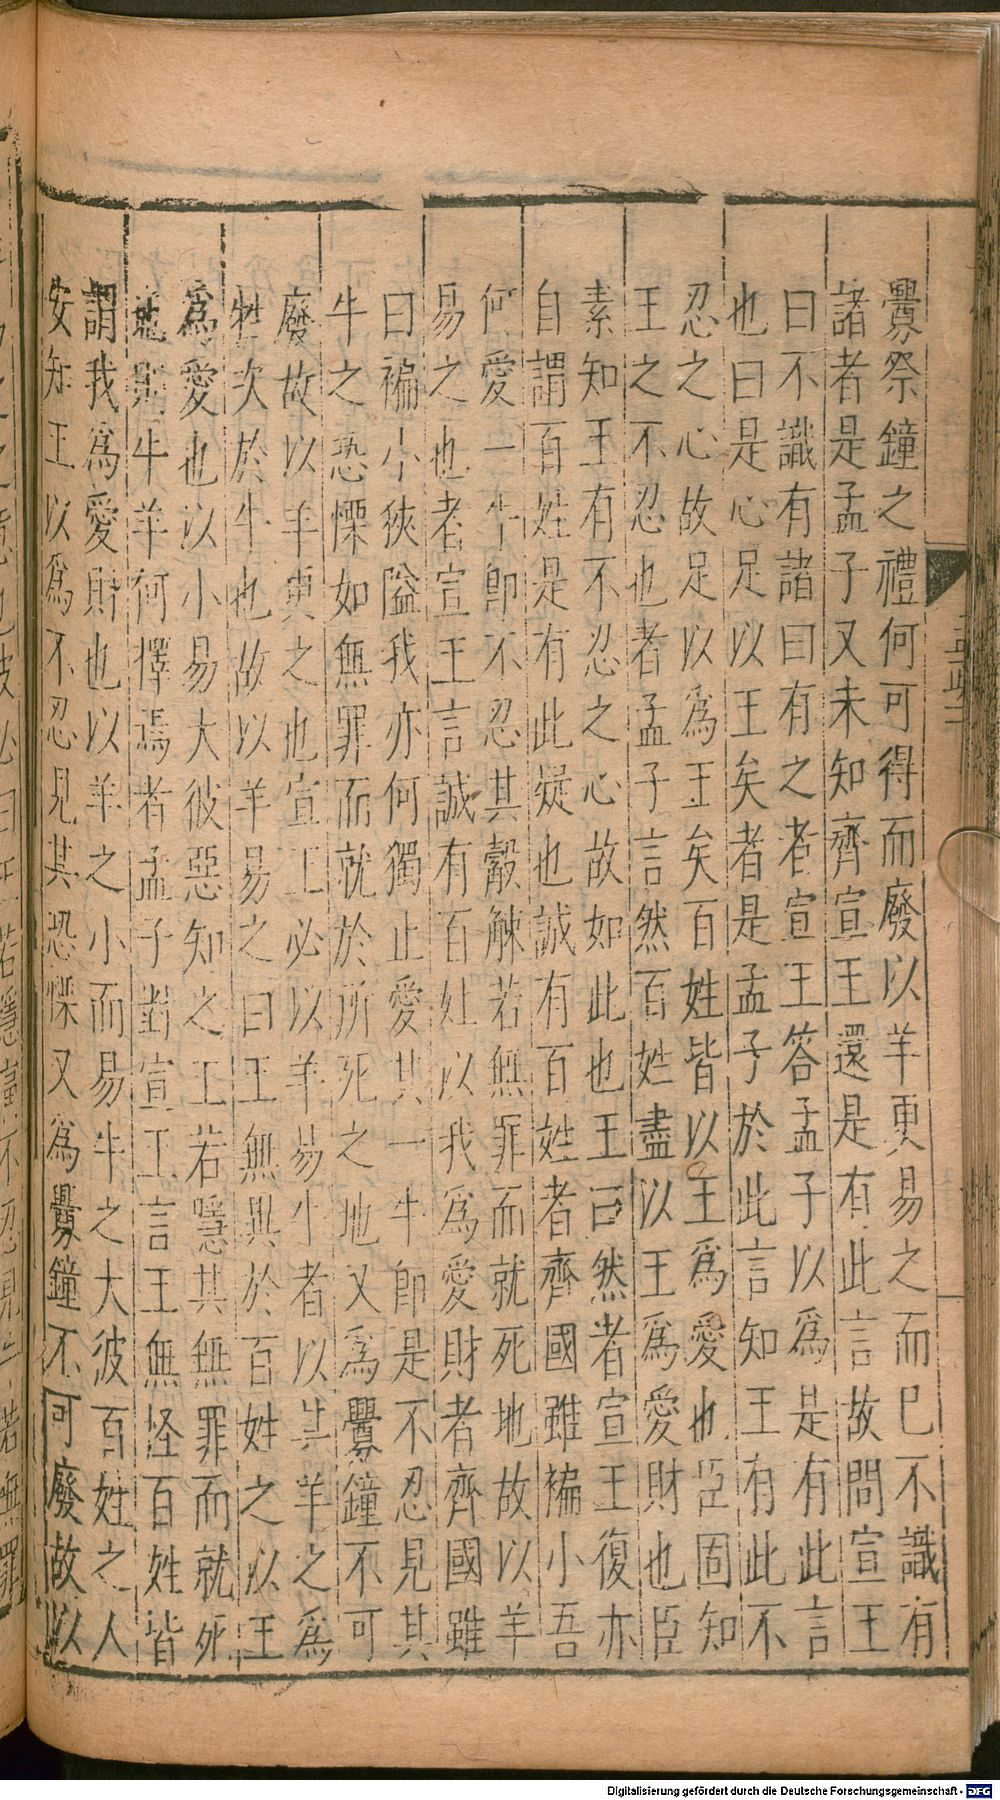 釁祭鐘之禮何可得而廢以羊更易之而巳不識有
諸者是孟子又未知齊宣王還是有此言故問宣王
曰不識有諸曰有之者宣王答孟子以爲是有此言
也曰是心足以王矣者是孟子於此言知王有此不
忍之心故足以爲王矣百姓皆以王爲愛也臣固知
王之不忍也者孟子言然百姓盡以王爲愛財也臣
素知王有不忍之心故如此也王曰然者宣王復亦
自謂百姓是有此疑也誠有百姓者齊國雖褊小吾
何愛一牛卽不忍其觳觫若無罪而就死地故以羊
易之也者宣王言誠有百姓以我爲愛財者齊國雖
曰褊小狹隘我亦何獨止愛其一牛卽是不忍見其
牛之恐慄如無罪而就於所死之地又爲釁鐘不可
廢故以羊更之也宣王必以羊易牛者以其羊之爲
牲次於牛也故以羊易之曰王無異於百姓之以王
爲愛也以小易大彼惡知之王若隱其無罪而就死
地則牛羊何擇焉者孟子對宣王言王無怪百姓皆
謂我爲愛財也以羊之小而易牛之大彼百姓之人
安知王以爲不忍見其恐慄又爲釁鐘不可廢故以
Digitalisierung gefördert durch die Deutsche Forschungsgemeinschaft - DFG